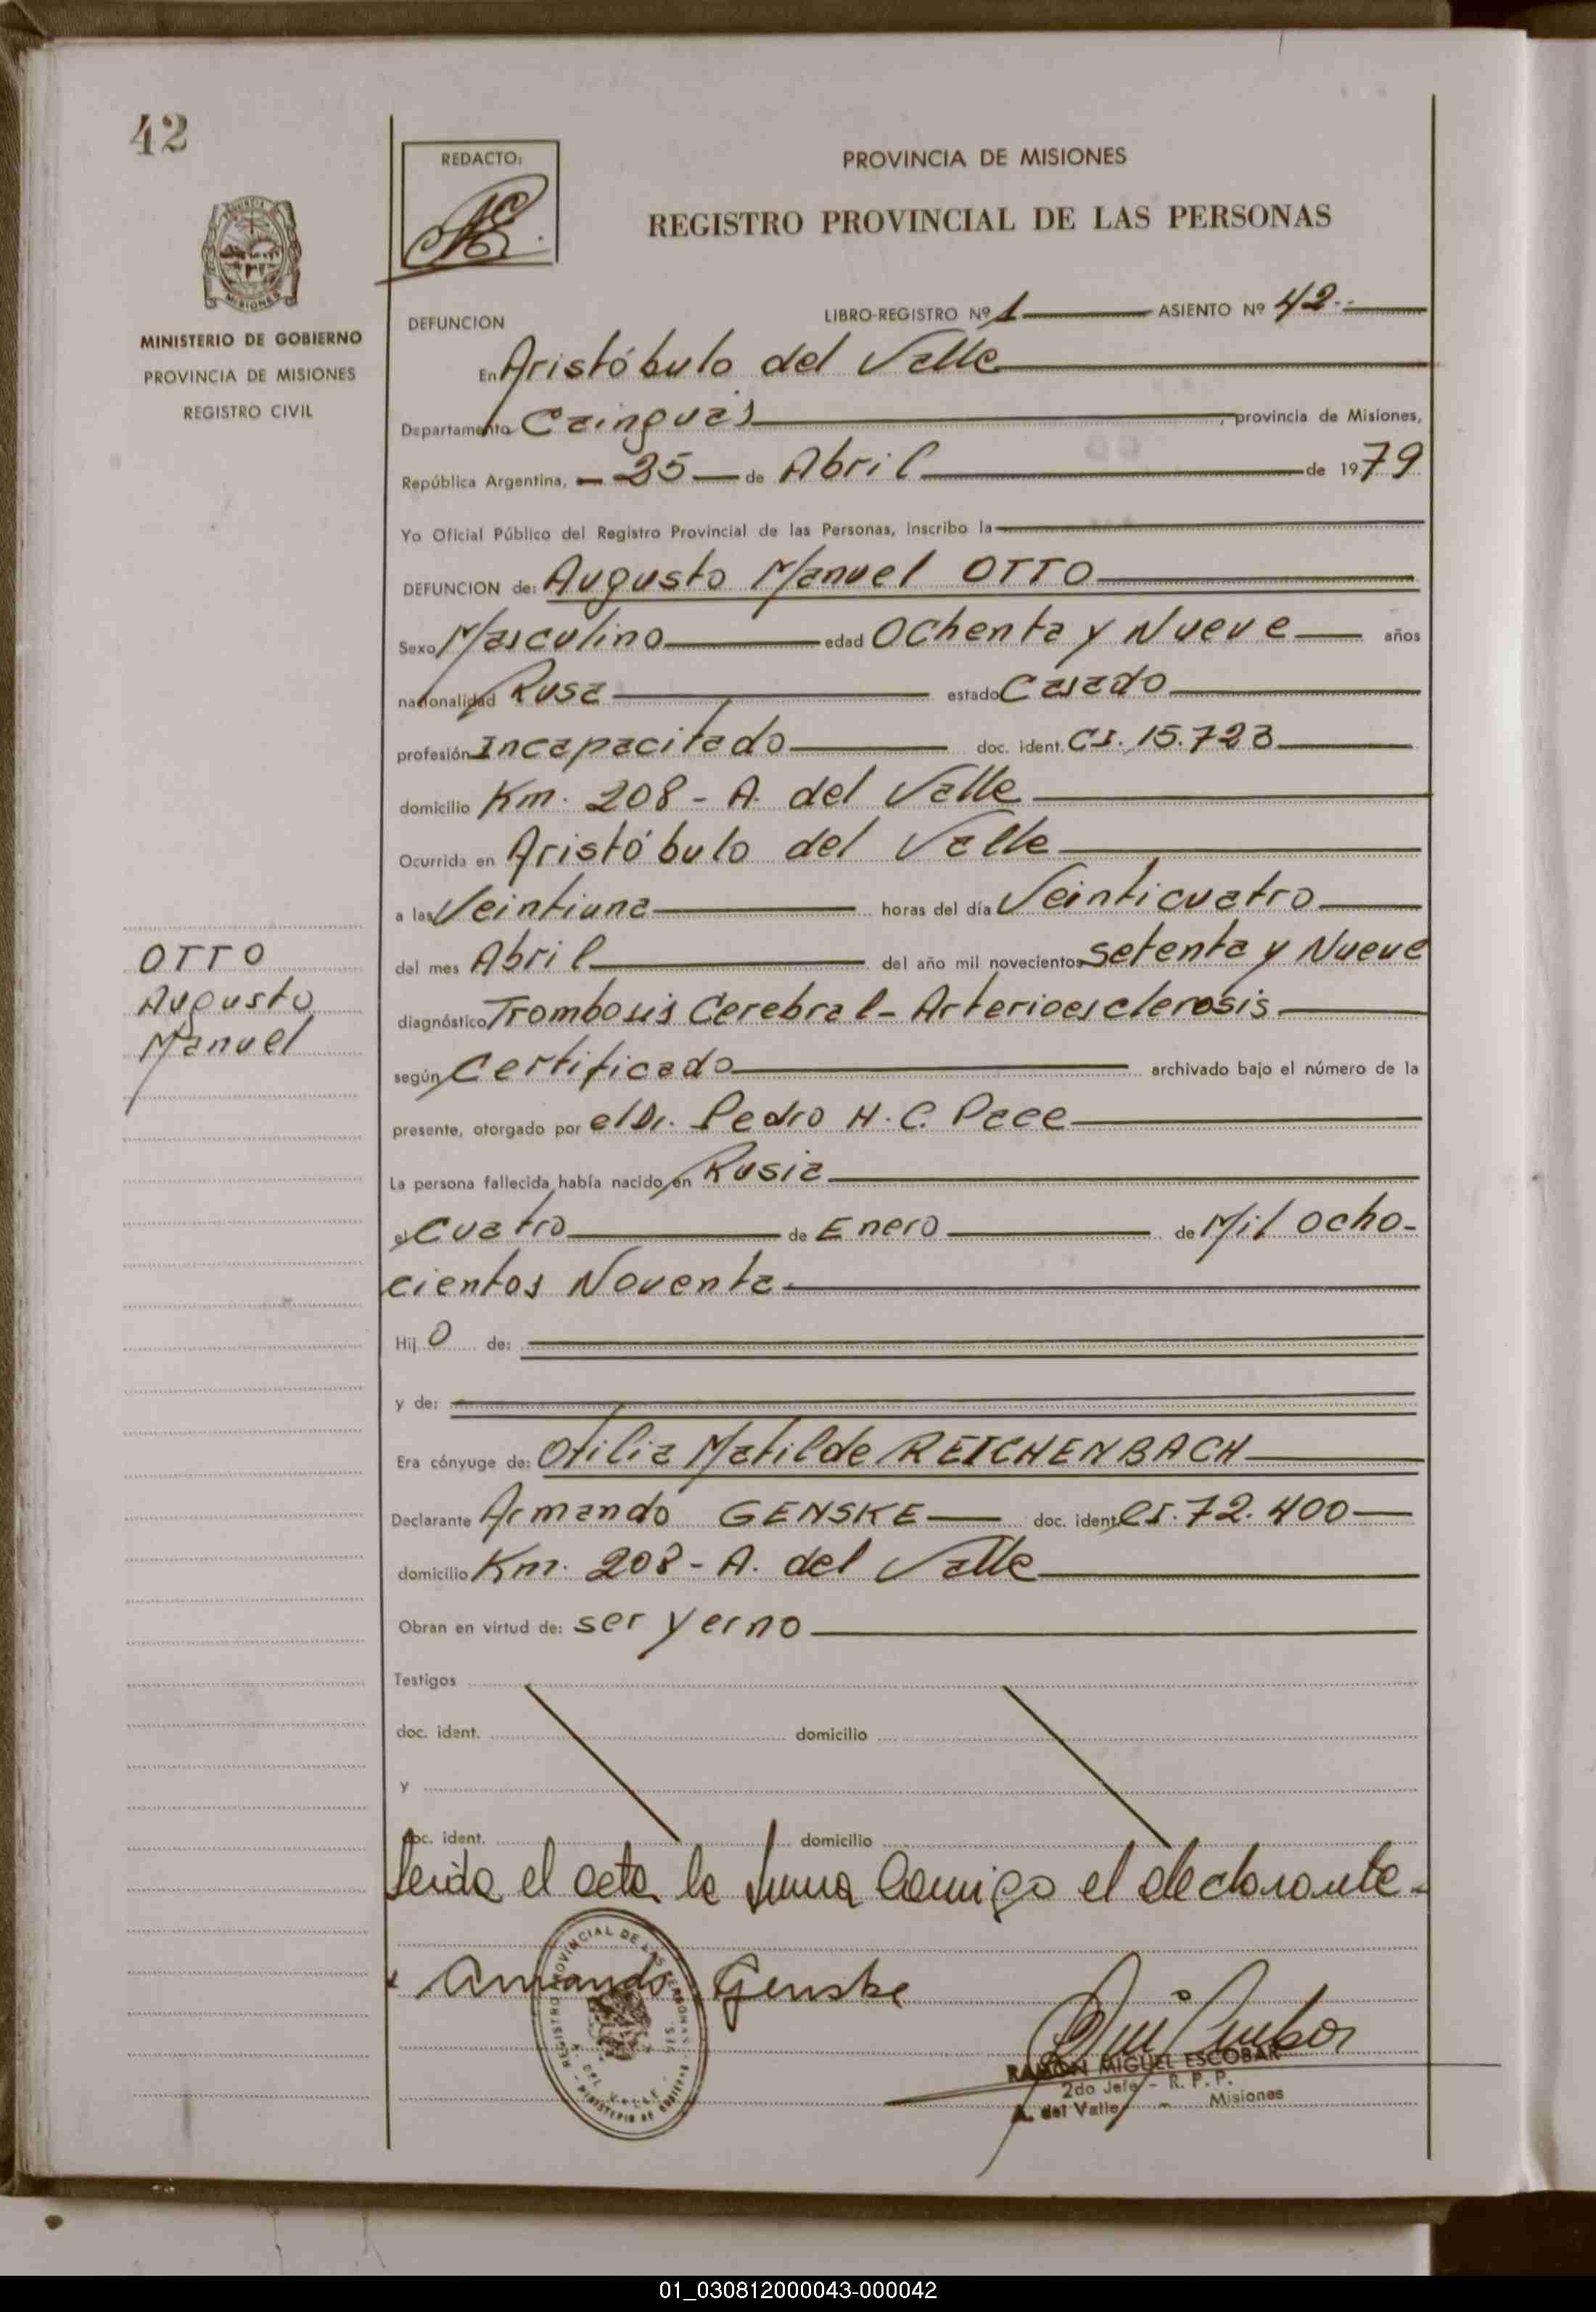 42
REDACTO:
PROVINCIA DE MISIONES
REGISTRO PROVINCIAL DE LAS PERSONAS
MISIONES
MINISTERIO DE GOBIERNO
PROVINCIA DE MISIONES
REGISTRO CIVIL
DEFUNCION
LIBRO-REGISTRO Nº 1 ASIENTO Nº 42
En Aristóbulo del Valle
Departamento Cainguás, provincia de Misiones,
República Argentina, 25 de Abril de 1979
Yo Oficial Público del Registro Provincial de las Personas, inscribo la
DEFUNCION de: Augusto Manuel OTTO
Sexo Masculino edad Ochenta y Nueve años
nacionalidad Rusa estado Casado
profesión Incapacitado doc. ident. CI. 15.723
domicilio Km. 208 - A. del Valle
Ocurrida en Aristóbulo del Valle
a las Veintiuna horas del día Veinticuatro
del mes Abril del año mil novecientos setenta y Nueve
diagnóstico Trombosis Cerebral - Arterioesclerosis
según Certificado archivado bajo el número de la
presente, otorgado por el Dr. Pedro H. C. Pace
La persona fallecida había nacido en Rusia
el Cuatro de Enero de Mil ocho-
cientos Noventa
Hij o de:
y de:
Era cónyuge de: Otilia Matilde REICHENBACH
Declarante Armando GENSKE doc. ident CI. 72.400
domicilio Km. 208 - A. del Valle
Obran en virtud de: ser yerno
Testigos
doc. ident. domicilio
y
doc. ident. domicilio
Leida el acta la firma conmigo el declarante.
OTTO
Augusto
Manuel
Armando Genske
RAMON MIGUEL ESCOBAR
2do Jefe - R. P. P.
A. del Valle - Misiones
01_030812000043-000042